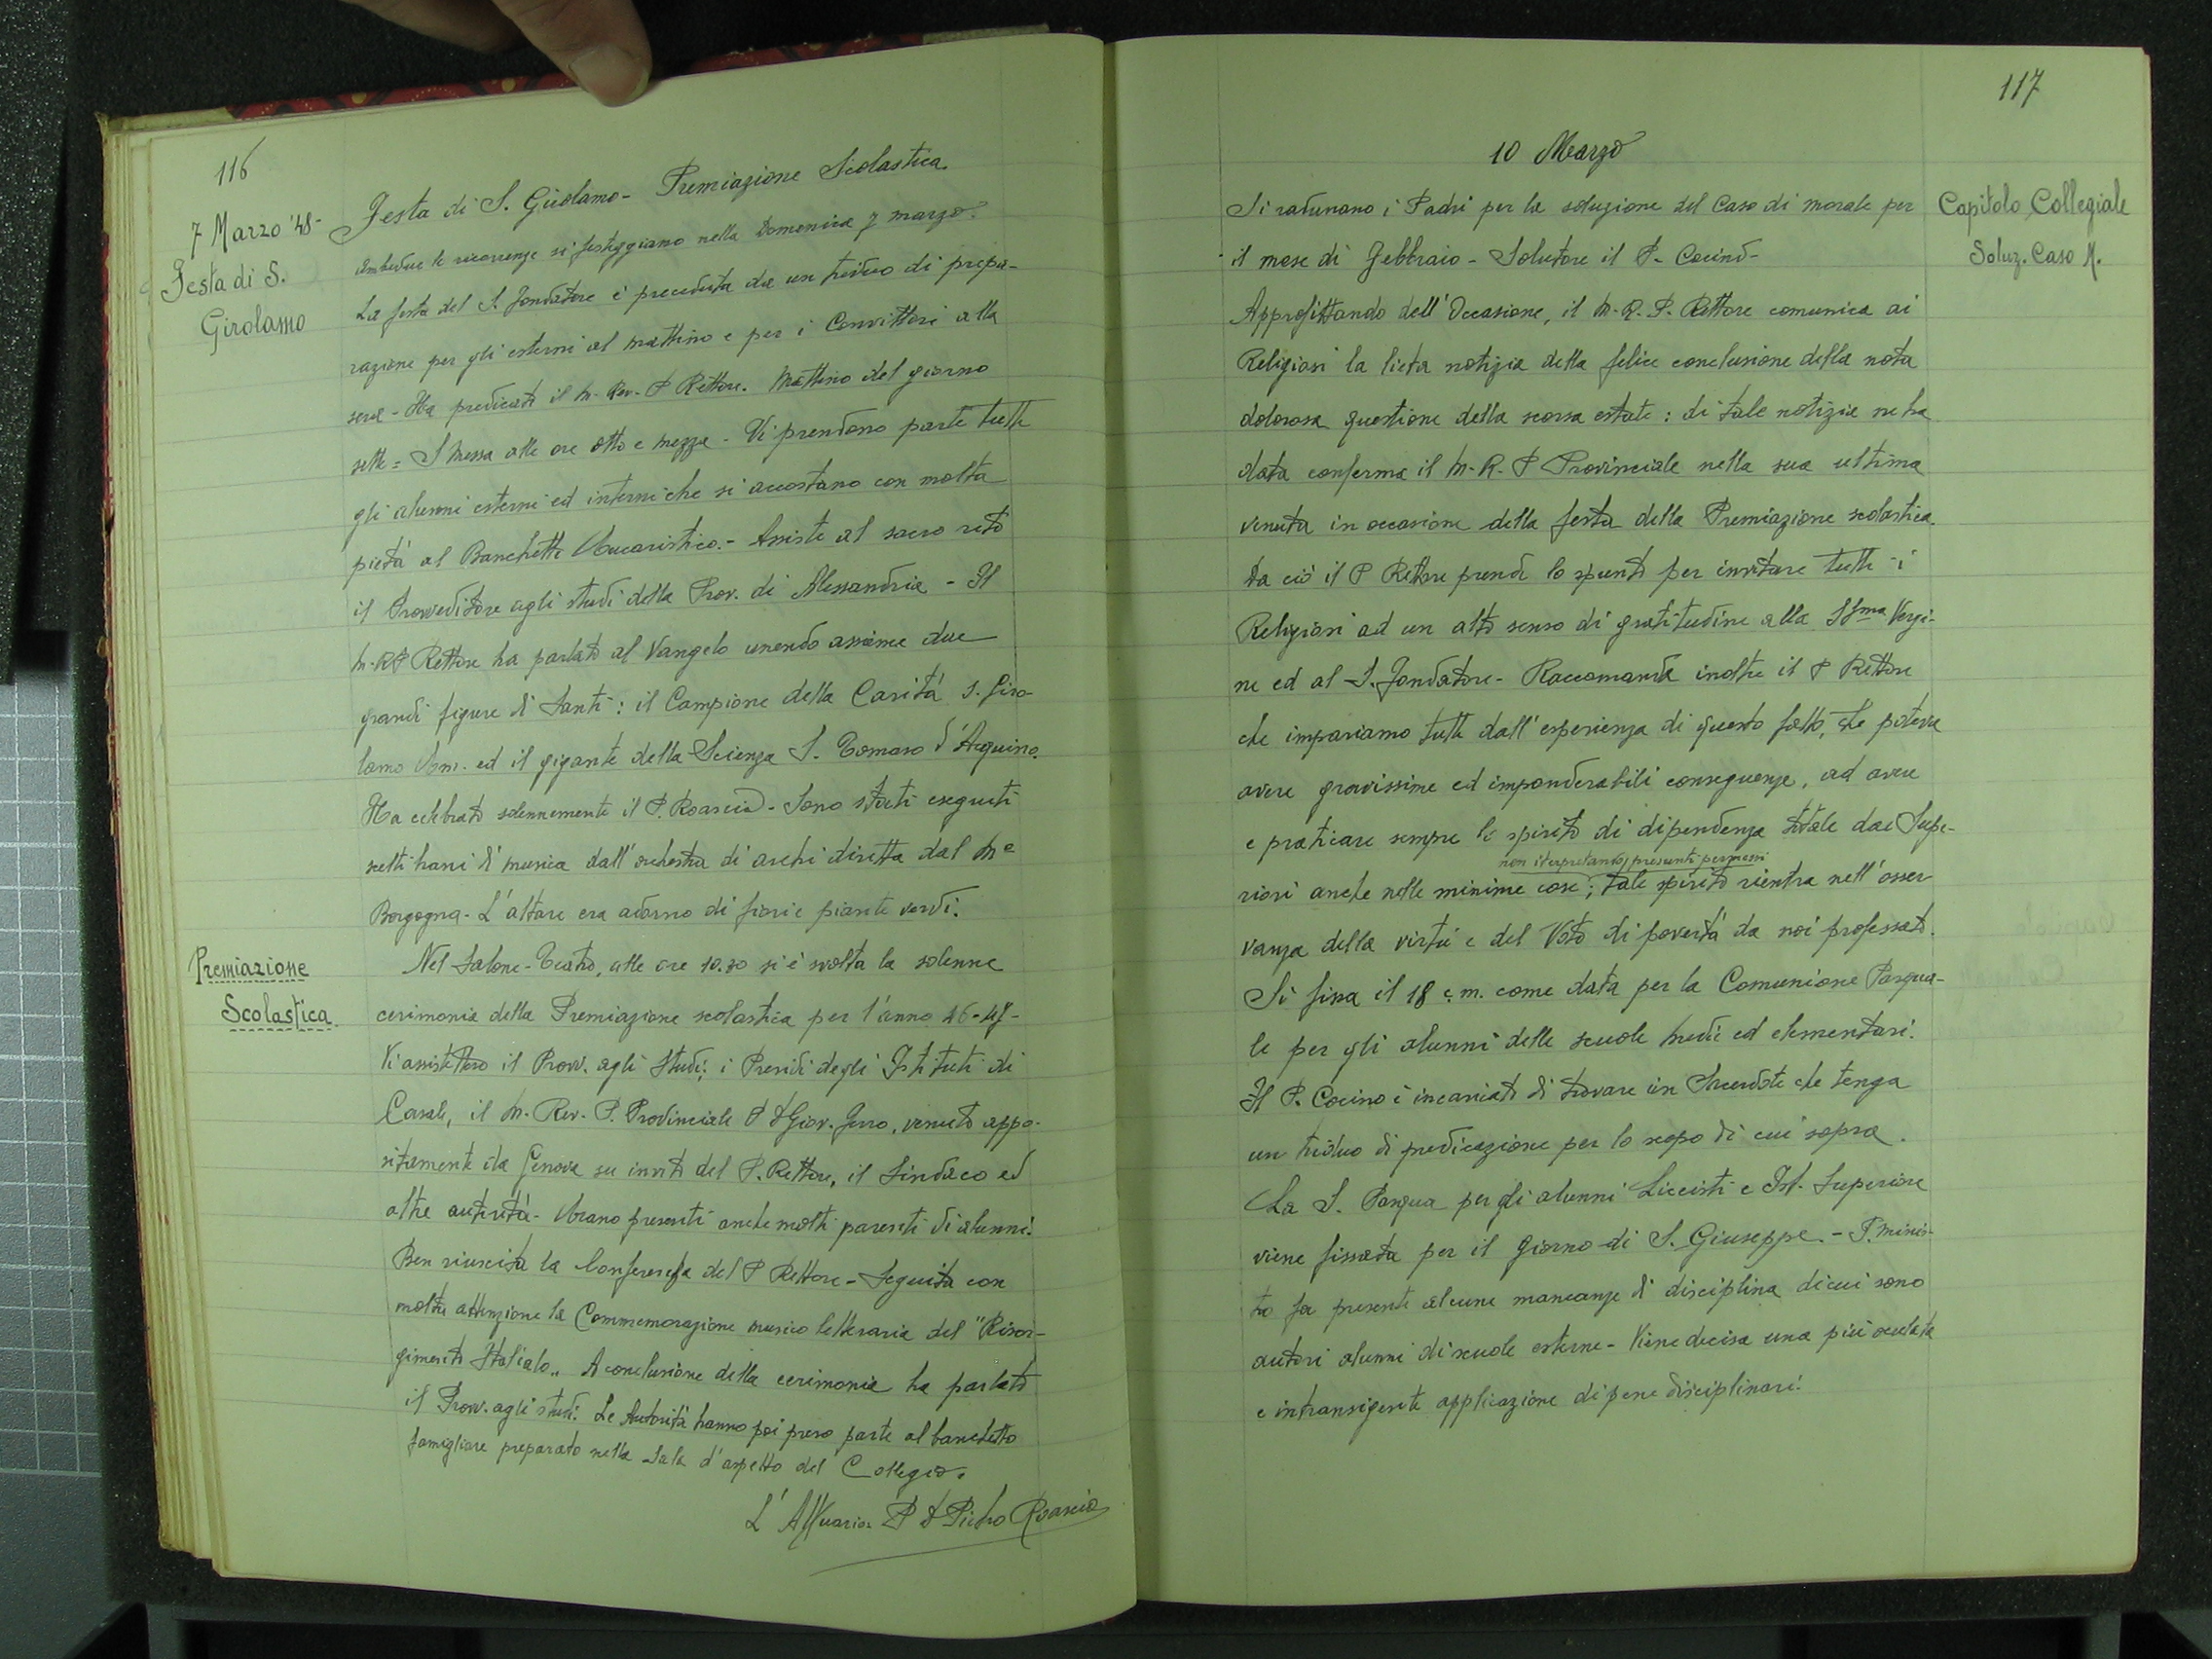 116
7 Marzo '48-
Festa di S.
Girolamo
Festa di S. Girolamo - Premiazione Scolastica
Ambedue le ricorrenze si festeggiano nella Domenica 7 marzo.
La festa del S. Fondatore è preceduta da un triduo di prepa-
razione per gli esterni al mattino e per i Convittori alla
sera - Ha predicato il M. Rev. P Rettore. Mattino del giorno
sette = S Messa alle ore otto e mezza - Vi prendono parte tutti
gli alunni esterni ed interni che si accostano con molta
pietà al Banchetto Eucaristico. - Assiste al sacro rito
il Provveditore agli studi della Prov. di Alessandria - Il
M. R P Rettore ha parlato al Vangelo unendo assieme due
grandi figure di Santi : il Campione della Carità S. Giro-
lamo Em. ed il gigante della Scienza S. Tomaso d'Aquino.
Ha celebrato solennemente il P. Roascio - Sono stati eseguiti
scelti brani di musica dall'orchestra di archi diretta dal Mº
Borgogna - L'altare era adorno di fiori e piante verdi.
Premiazione
Scolastica.
Nel Salone-Teatro, alle ore 10.30 si è svolta la solenne
cerimonia della Premiazione scolastica per l'anno 46-47-
Vi assistettero il Provv. agli Studi; i Presidi degli Istituti di
Casale, il M. Rev. P. Provinciale P D Giov. Ferro, venuto appo-
sitamente da Genova su invito del P. Rettore, il Sindaco ed
altre autorità - Erano presenti anche molti parenti di alunni.
Ben riuscita la Conferenza del P Rettore - Seguita con
molta attenzione la Commemorazione musico letteraria del "Risor-
gimento Italialo" A conclusione della cerimonia ha parlato
il Provv. agli studi. Le Autorità hanno poi preso parte al banchetto
famigliare preparato nella Sala d'aspetto del Collegio.
L'Attuario P D Pietro Roascio
117
10 Marzo
Capitolo Collegiale
Soluz. Caso M.
Si radunano i Padri per la soluzione del Caso di morale per
il mese di Febbraio - Solutore il P. Cocino -
Approfittando dell'Occasione, il M. R. P. Rettore comunica ai
Religiosi la lieta notizia della felice conclusione della nota
dolorosa questione della scorsa estate : di tale notizia ne ha
data conferma il M. R. P Provinciale nella sua ultima
venuta in occasione della festa della Premiazione scolastica.
Da ciò il P Rettore prende lo spunto per invitare tutti i
Religiosi ad un alto senso di gratitudine alla SSma Vergi-
ne ed al S. Fondatore - Raccomanda inoltre il P Rettore
che impariamo tutti dall'esperienza di questo fatto, che poteva
avere gravissime ed imponderabili conseguenze, ad avere
e praticare sempre lo spirito di dipendenza totale dai Supe-
non iterpretando presunti permessi
riori anche nelle minime cose ; tale spirito rientra nell'osser-
vanza della virtù e del Voto di povertà da noi professato.
Si fissa il 18 c. m. come data per la Comunione Pasqua-
le per gli alunni delle scuole medie ed elementari.
Il P. Cocino è incaricato di trovare un Sacerdote che tenga
un triduo di predicazione per lo scopo di cui sopra.
La S. Pasqua per gli alunni Liceisti e Ist. Superiore
viene fissata per il giorno di S. Giuseppe. - P. minis-
tro fa presente alcune mancanze di disciplina di cui sono
autori alunni di scuole esterne - Viene decisa una più oculata
e intransigente applicazione di pene disciplinari.